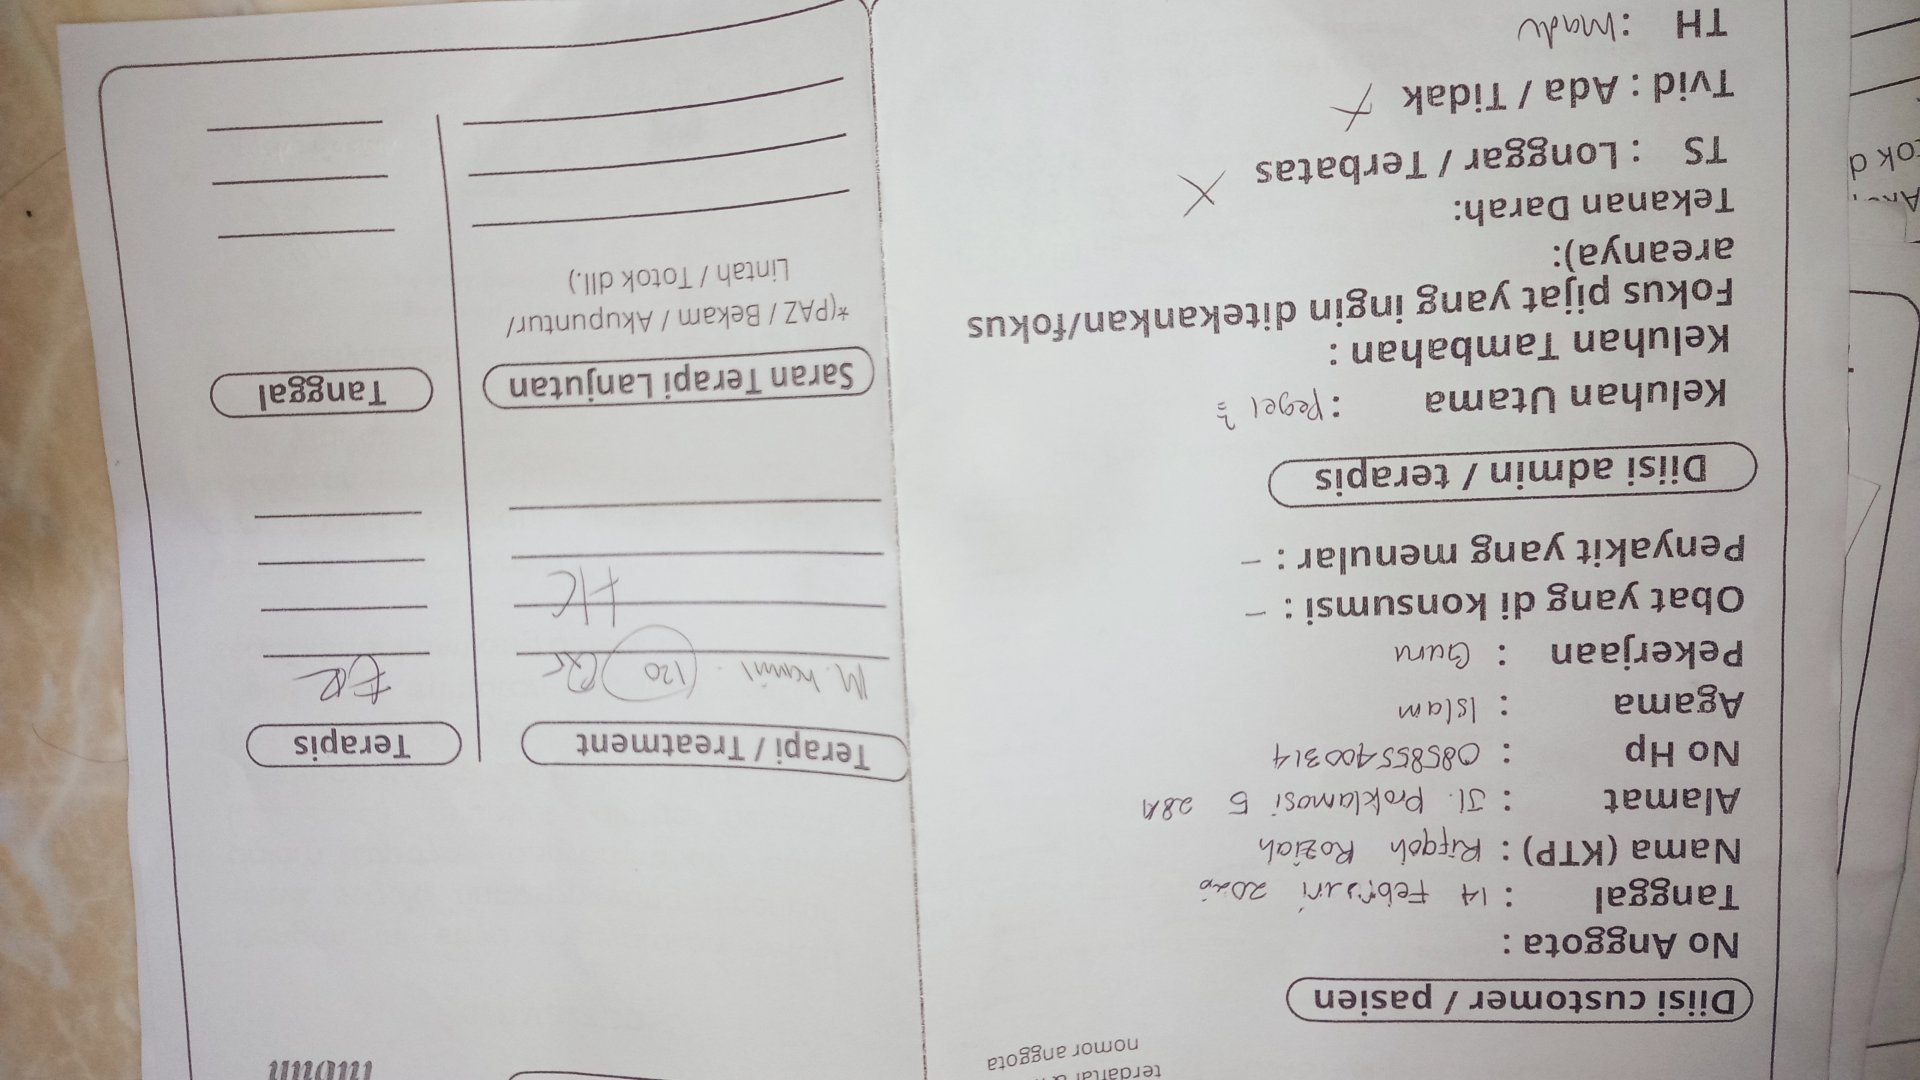 nomor anggota
Diisi customer / pasien
No Anggota :
Tanggal : 14 Februari 2020
Nama (KTP) : Rifqoh Roziah
Alamat : Jl. Proklamasi 5 28A
No Hp : 085855400314
Agama : Islam
Pekerjaan : Guru
Obat yang di konsumsi : -
Penyakit yang menular : -
Diisi admin / terapis
Keluhan Utama : Pegel 2
Keluhan Tambahan :
Fokus pijat yang ingin ditekankan/fokus
areanya):
Tekanan Darah:
TS : Longgar / Terbatas X
Tvid : Ada / Tidak X
TH : Madu
Terapi / Treatment Terapis
M. hamil (120)
HC
Saran Terapi Lanjutan Tanggal
*(PAZ / Bekam / Akupuntur/
Lintah / Totok dll.)